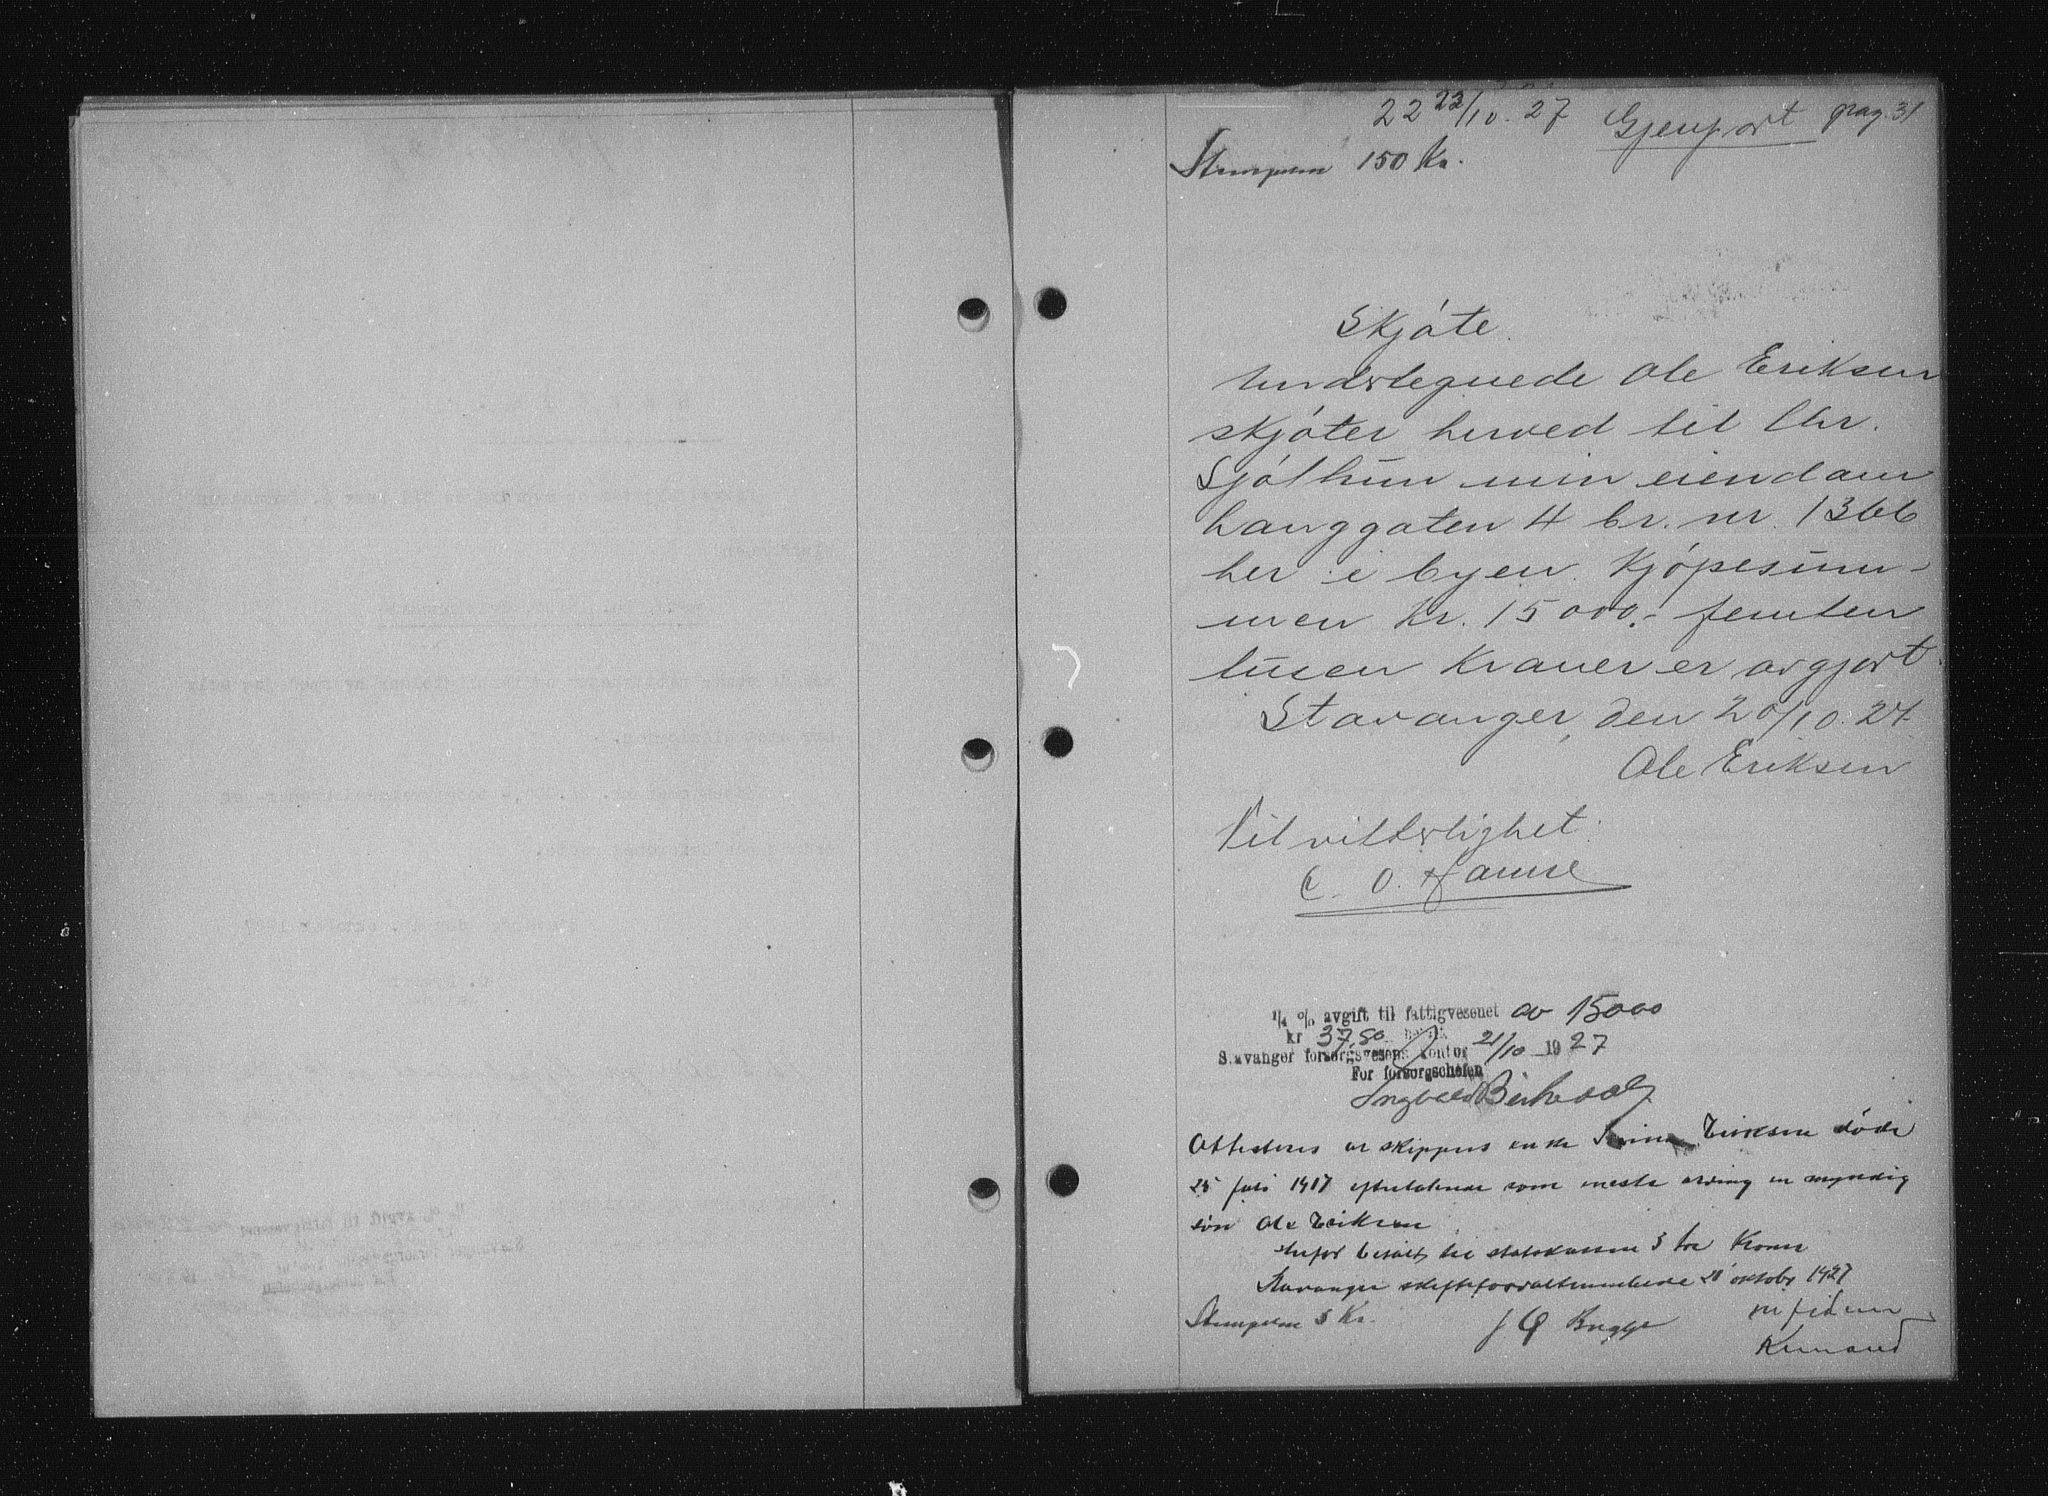 22 22/10. 27 Gjenpart pag. 31
Stempelm 150 Kr.
Skjøte.
Undertegnede Ole Eriksen
skjøter herved til Chr.
Sjøthun min eiendom
Langgaten 4 br. nr. 1366
her i byen. Kjøpesum-
men kr. 15000.- femten
tusen Kroner er avgjort.
Stavanger, den 20/10. 27.
Ole Eriksen
Til vitterlighet:
C. O.
1/4 % avgift til fattigvesenet av 15000
kr 37,50 betalt
Stavanger forsorgsvesens kontor 21/10 1927
For forsorgschefen
Attesteres at skippers enke Eriksen døde
25 juli 1917 efterlatende som eneste arving en myndig
søn Ole Eriksen
Herfor betalt til statskassen 3 tre Kroner
Stavanger skifteforvalterembede 20 oktobr 1927
Stempelm 3 Kr. J Q Brygge